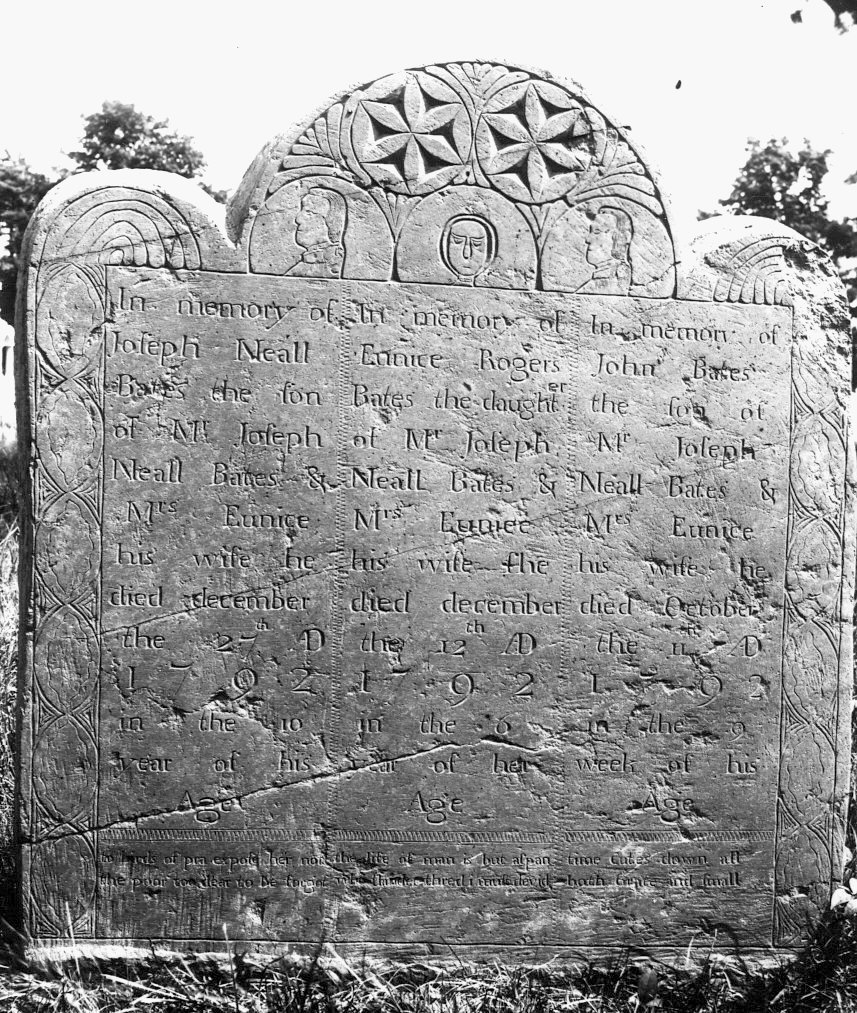 In memory of
Joseph Neall
Bates the ſon
of Mr Joſeph
Neall Bates &
Mrs Eunice
his wife he
died december
the 27th AD
1792
in the 10
year of his
Age
In memory of
Eunice Rogers
Bates the daughter
of Mr Joſeph
Neall Bates &
Mrs Eunice
his wife ſhe
died december
the 12th AD
1792
in the 6
year of her
Age
In memory of
John Bates
the ſon of
Mr Joſeph
Neall Bates &
Mrs Eunice
his wife he
died October
the 11 AD
1792
in the 9
week of his
Age
of pra expoſe her
the poor too dear to be forgot
the life of man is but aſpan
thred
time cutes down all
both and ſmall